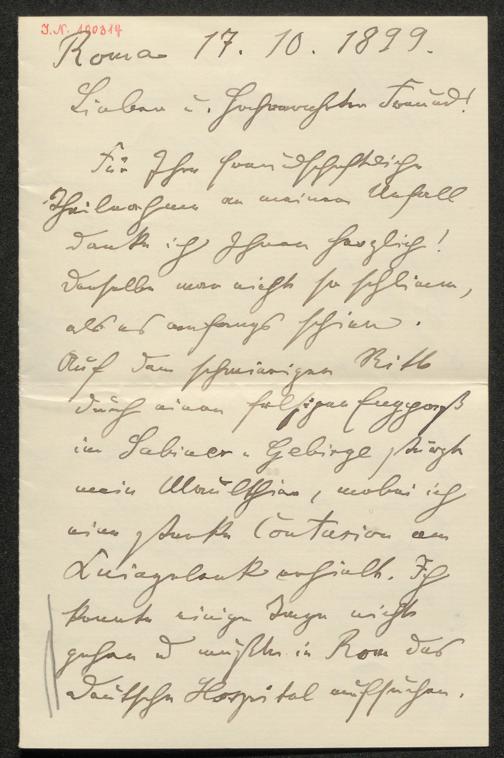 J.N. 190314
Roma 17. 10. 1899.
Lieber u. hochverehrter Freund!
Für Ihre freundschaftliche
Theilnahme an meinem Unfall
danke ich Ihnen herzlich!
Derselbe war nicht so schlimm,
als es anfangs schien.
Auf dem schwierigen Ritt
durch einen felsigen Engpaß
im Sabiner-Gebirge stürzte
mein Maulthier, wobei ich
eine starke Contusion am
Kniegelenk erhielt. Ich
konnte einige Tage nicht
gehen u mußte in Rom das
Deutsche Hospital aufsuchen.